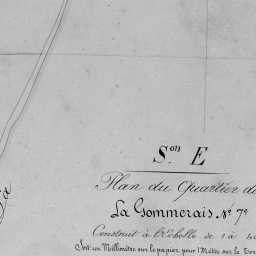 Son E
Plan du Quartier de
La Gommerais No 7e
Construit à l'Echelle de 1 à
Soit un Millimètre sur le papier pour 1 Mètre sur le